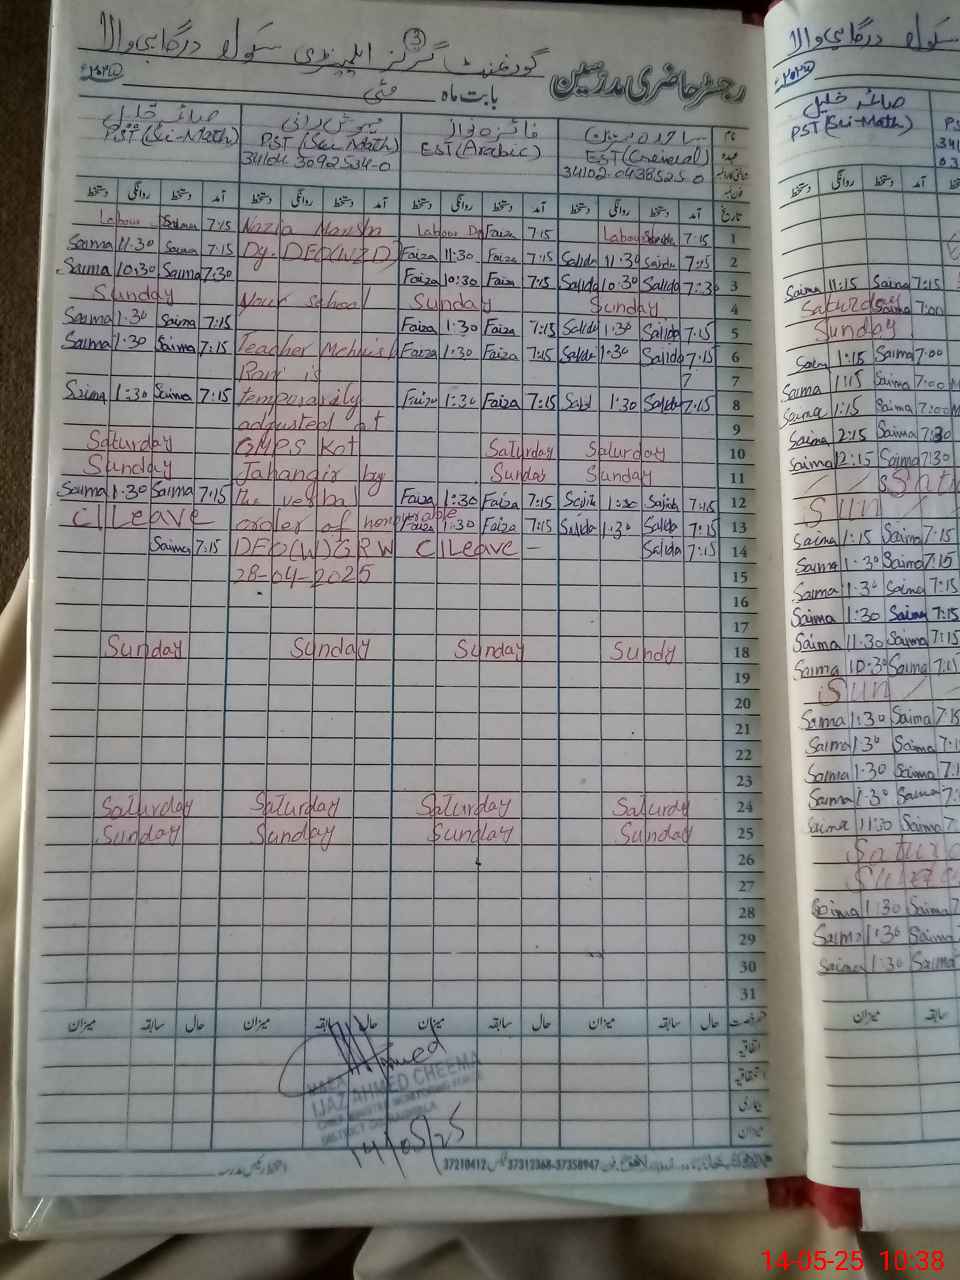 گورنمنٹ گرلز ایلیمنٹری سکول درگاہی والا
3
رجسٹر حاضری مدرسین
بابت ماہ مئی
صائمہ خلیل
PST (Sci-Math)
مہوش رانی
PST (Sci Math)
34104.3092534-0
فائزہ نواز
EST (Arabic)
ساجدہ پروین
EST (General)
34102-0438525-0
دستخط روانگی دستخط آمد
تاریخ
Labour Saima 7:15 Nazia Manshn Labour Faiza 7:15 Labour 7:15 1
Saima 11:30 Saima 7:15 Dy. DEO(WZD) Faiza 11:30 Faiza 7:15 Sajida 11:30 Sajida 7:15 2
Saima 10:30 Saima 7:30 Faiza 10:30 Faiza 7:15 Sajida 10:30 Sajida 7:30 3
Sunday Your school Sunday Sunday 4
Saima 1:30 Saima 7:15 Faiza 1:30 Faiza 7:15 Sajida 1:30 Sajida 7:15 5
Saima 1:30 Saima 7:15 Teacher Mehwish Faiza 1:30 Faiza 7:15 Sajida 1:30 Sajida 7:15 6
Rani is 7
Saima 1:30 Saima 7:15 temporarily Faiza 1:30 Faiza 7:15 1:30 Sajida 7:15 8
adjusted at 9
Saturday GMPS Kot Saturday Saturday 10
Sunday Jahangir by Sunday Sunday 11
Saima 1:30 Saima 7:15 the verbal Faiza 1:30 Faiza 7:15 1:30 Sajida 7:15 12
C/Leave order of honourable Faiza 1:30 Faiza 7:15 Sajida 1:30 Sajida 7:15 13
Saima 7:15 DEO(W)GRW C/Leave - Sajida 7:15 14
28-04-2025 15
16
17
Sunday Sunday Sunday Sundy 18
19
20
21
22
23
Saturday Saturday Saturday Saturdy 24
Sunday Sunday Sunday Sunday 25
26
27
28
29
30
31
میزان سابقہ حال میزان سابقہ حال میزان سابقہ حال میزان سابقہ حال
اتفاقیہ
استحقاقیہ
بیماری
میزان
Ahmed
IJAZ AHMED CHEEMA
14/05/25
37210412 37312368-37358947
سکول درگاہی والا
صائمہ خلیل
PST (Sci-Math)
Saima 11:15 Saima 7:15
Saturday Saima 7:00
Sunday
Saima 1:15 Saima 7:00
Saima 1:15 Saima 7:00
Saima 1:15 Saima 7:00
Saima 2:15 Saima 7:30
Saima 12:15 Saima 7:30
Sun
Saima 1:15 Saima 7:15
Saima 1:30 Saima 7:15
Saima 1:30 Saima 7:15
Saima 1:30 Saima 7:15
Saima 11:30 Saima 7:15
Saima 10:30 Saima 7:15
Sun
Saima 1:30 Saima 7:15
Saima 1:30 Saima
Saima 1:30 Saima
Saima 1:30 Saima
Saima 11:30 Saima
Saima 1:30 Saima
Saima 1:30 Saima
Saima 1:30 Saima
میزان سابقہ
14-05-25 10:38